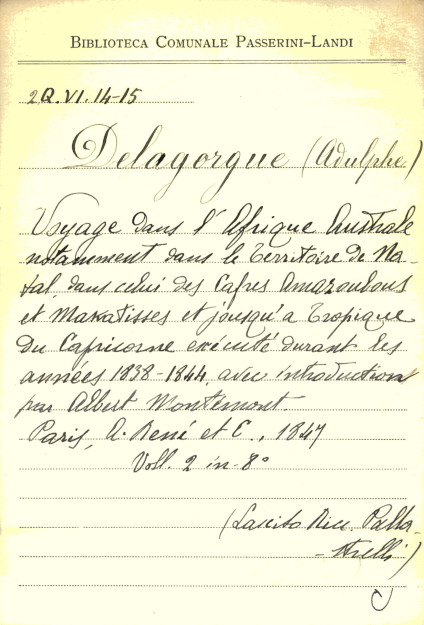 BIBLIOTECA COMUNALE PASSERINI-LANDI
2Q.VI.14-15
Delagorgue (Adulphe)
Voyage dans l'Afrique Australe
notamment dans le Territoire de Na-
tal, dans celui des Cafres Amazoulous
et Makatisses et jousqu'a Tropique
du Capricorne exécuté durant les
années 1838-1844, avec introduction
par Albert Montemont.
Paris, A. René et C., 1847
Voll. 2 in-8°
(Lascito Ricc. Palla-
-strelli)